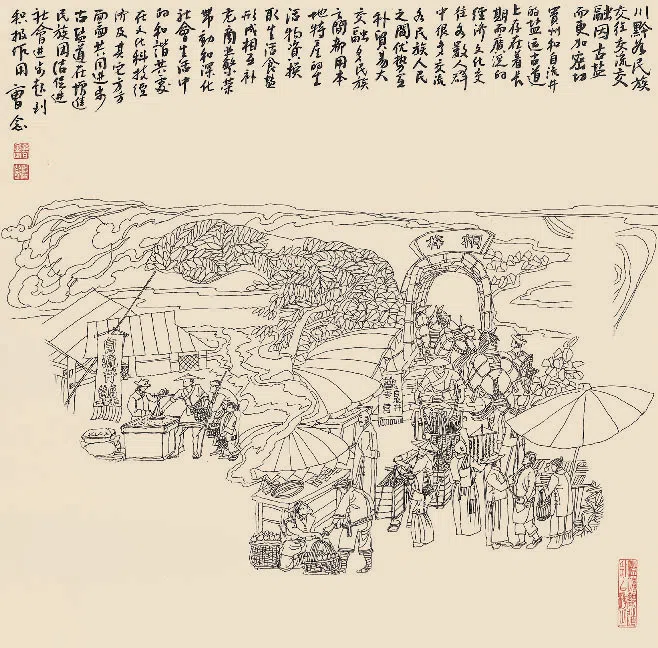 川黔各民族
交往交流交
融因古盐
而更加密切
贵州和自流井
的盐运古道
上存在着长
期而广泛的
经济文化交
往
中很多交流
各民族人民
之间优势互
补贸易大
交融各民族
之间都用本
地特产的生
活物资换
取生活食盐
形成相互补
充商业繁荣
带动和深化
社会生活中
的和谐共处
在文化科技经
济及其它方方
面面共同进步
古盐道在增进
民族团结促进
社会进步起到
积极作用 曹念
桐梓